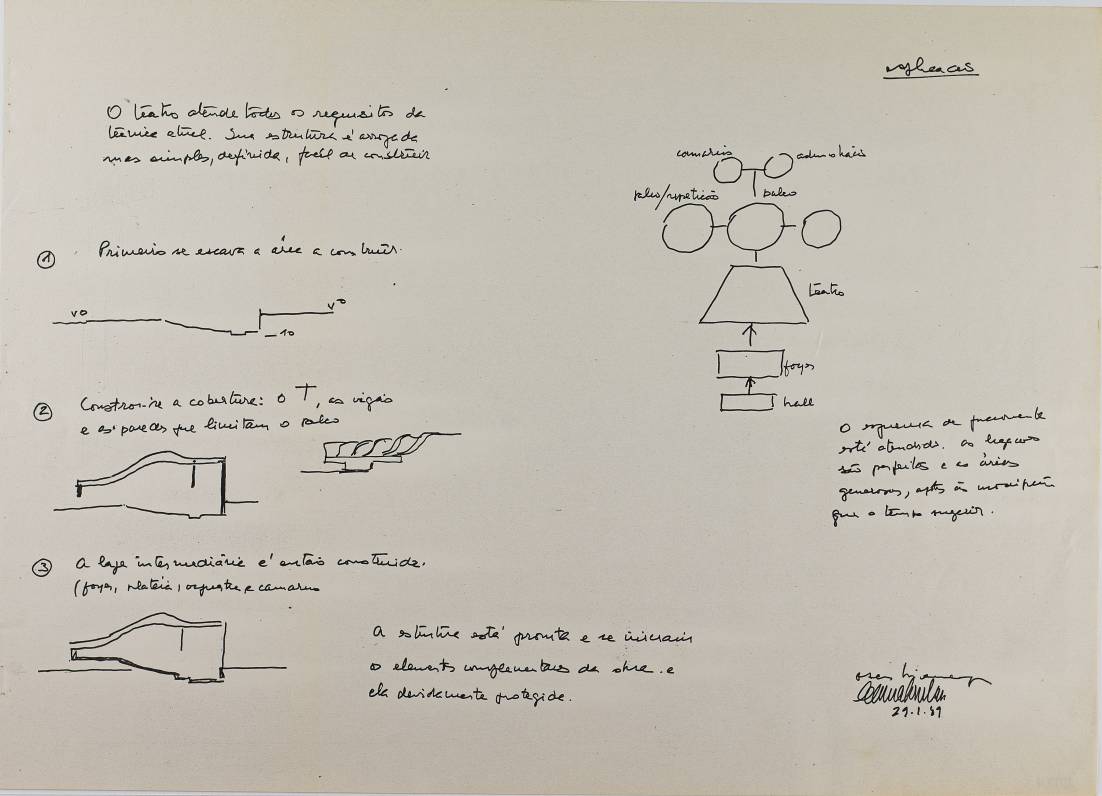 O teatro atende todos os requisitos da
técnica atual. Sua estrutura é arrojada
mas simples, definida, fácil de construir
① Primeiro se escava a área a construir.
vo
vo
-10
② Constroi-se a cobertura: o T, as vigas
e as paredes que limitam o palco
③ A laje intermediária é então construida.
(foyer, plateia, orquestra e camarins
A estrutura está pronta e se iniciam
os elementos complementares da obra e
ela devidamente protegida.
camarins
administração
palco/repetição
palco
teatro
foyer
hall
O esquema de
está atendido. As ligações
são perfeitas e as áreas
generosas, aptas às
que o tempo sugerir.
29.1.89